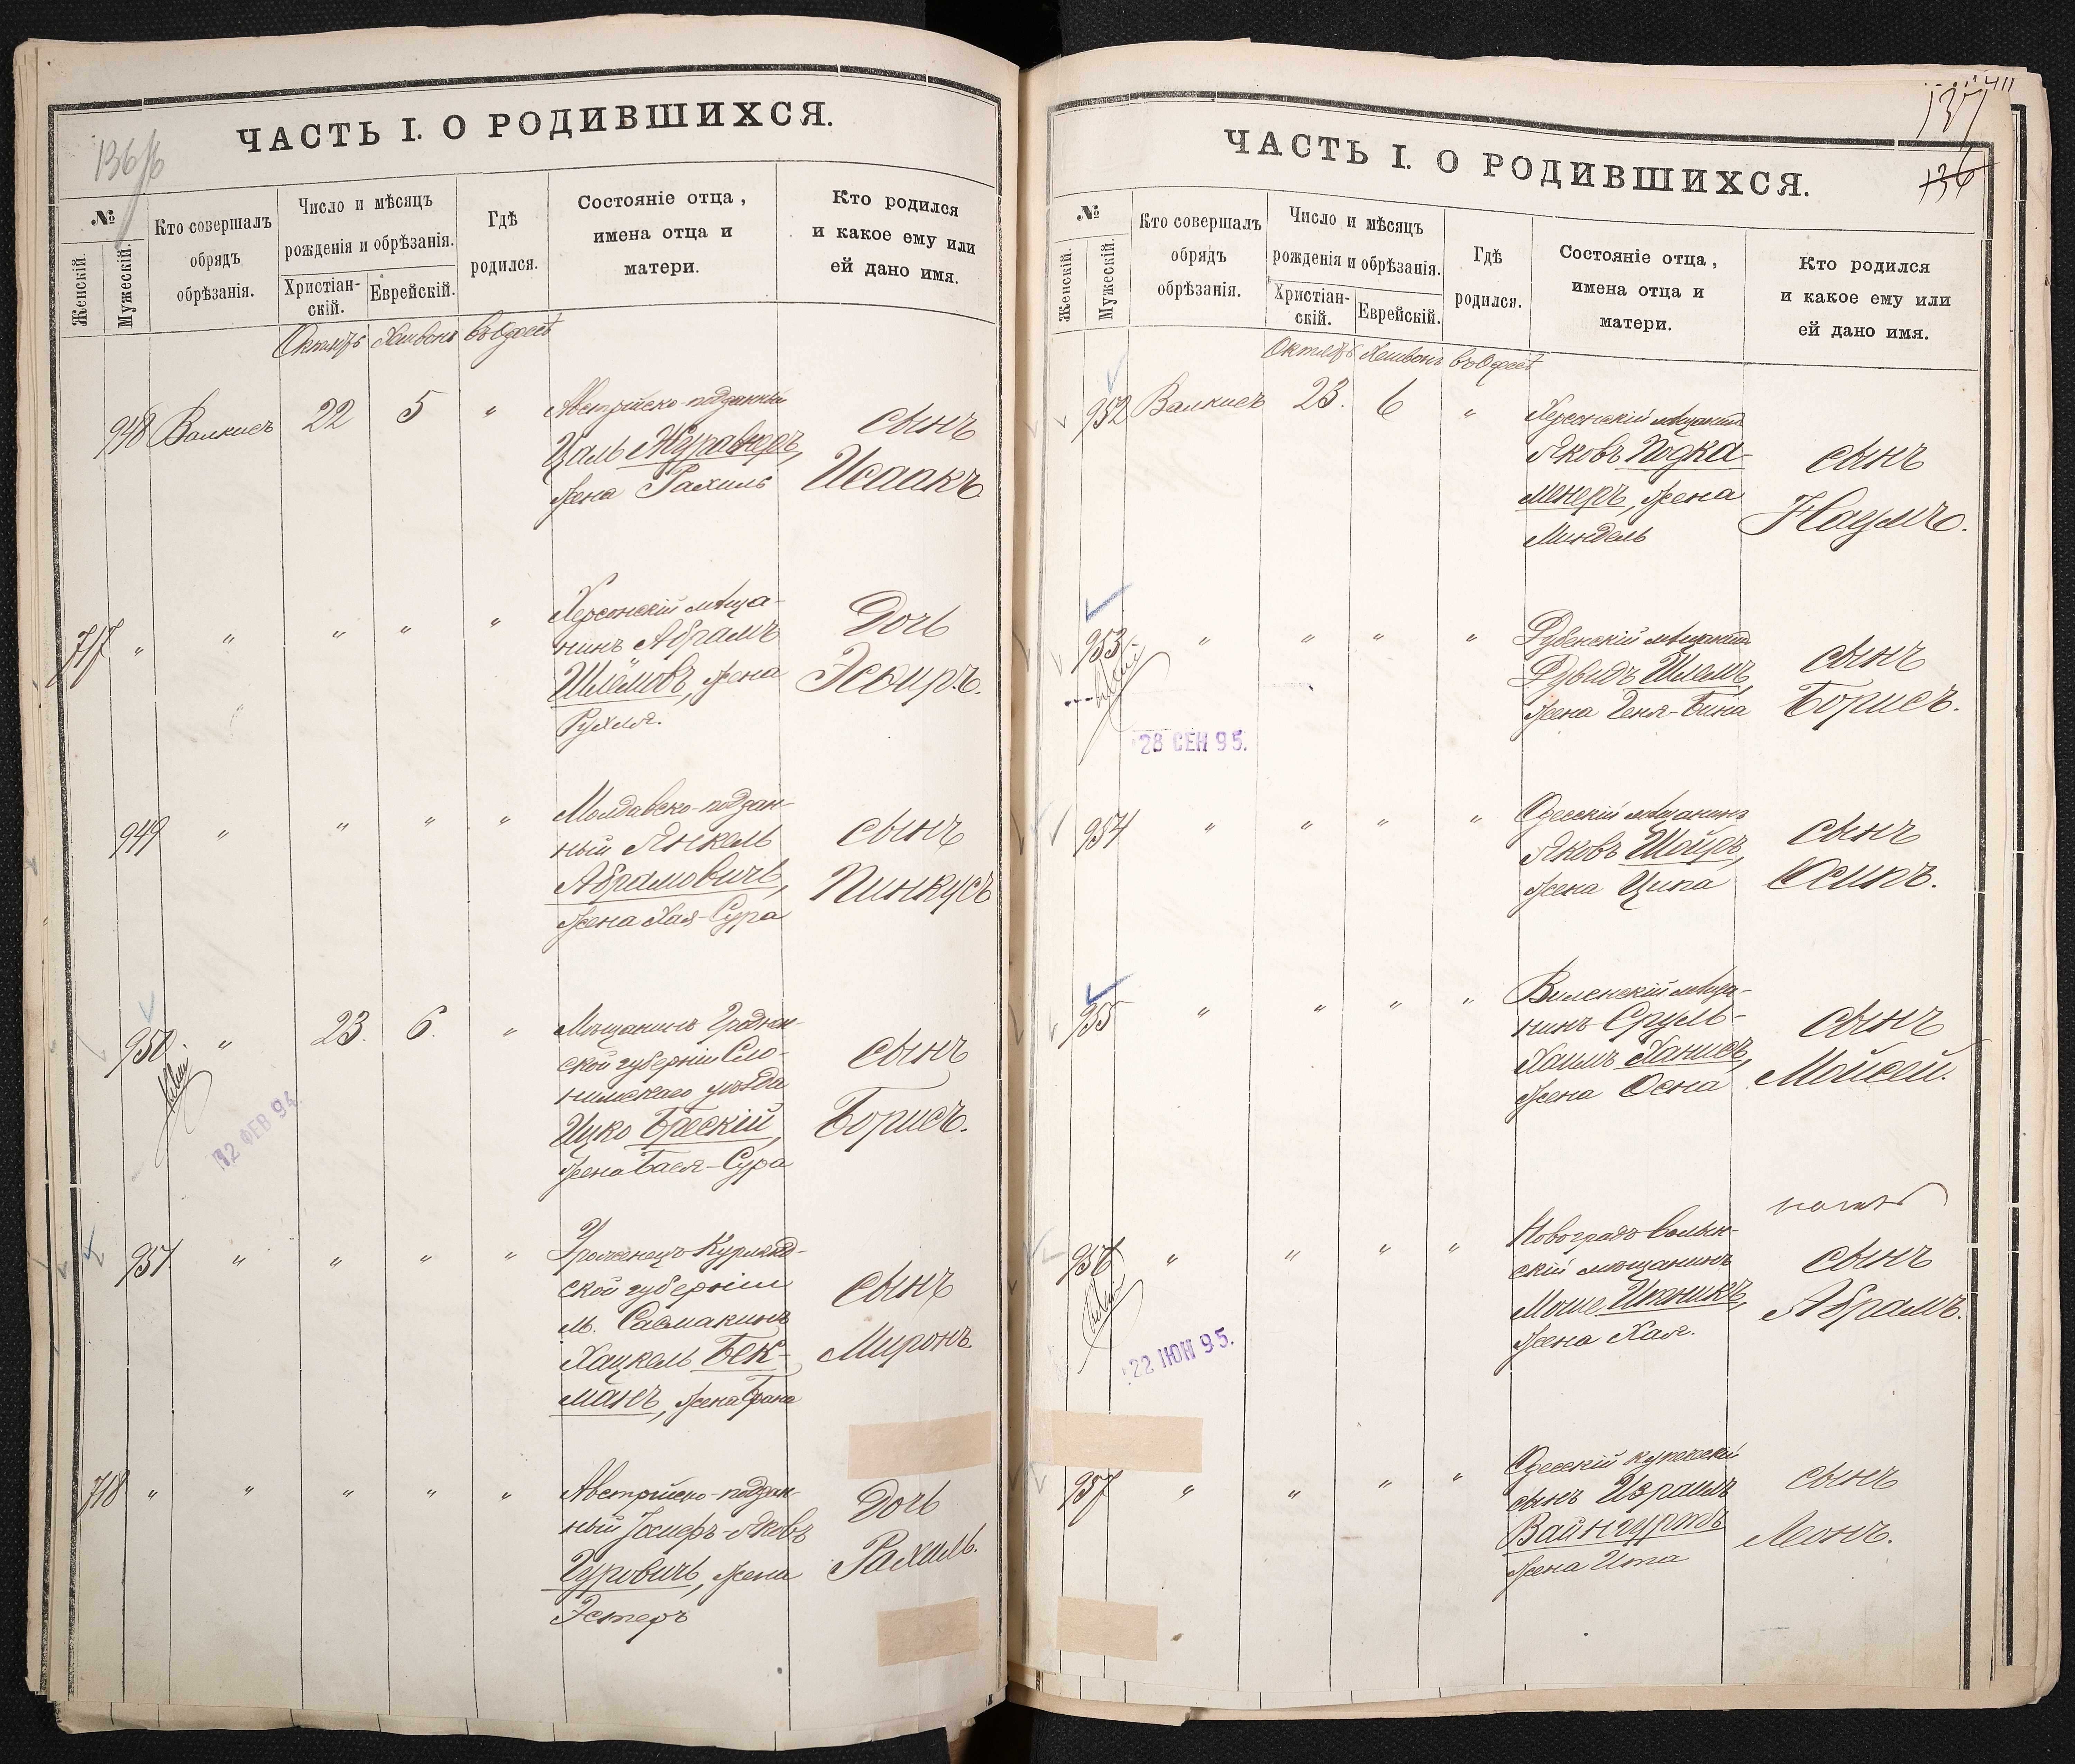 ЧАСТЬ I. О РОДИВШИХСЯ.
136
№
Женскій.
Мужескій.
Кто совершалъ
обрядъ
обрѣзанія.
Число и мѣсяцъ
рожденія и обрѣзанія.
Христіан-
скій.
Еврейскій.
Гдѣ
родился.
Состояніе отца,
имена отца и
матери.
Кто родился
и какое ему или
ей дано имя.
Октябрь Хешвонъ въ Одессѣ
948 Валкисъ 22 5 "
Австрійско-подданный
Цаль
жена Рахиль
сынъ
Исаакъ
717 " " " " "
Херсонскій мѣща-
нинъ Абрамъ
Шлёмовъ, жена
Рухля.
Дочь
Эсѳирь.
949 " " " "
Молдавско-поддан-
ный Янкель
Абрамовичъ,
жена Хая-Сура
сынъ
Пинкусъ
950. " 23. 6. "
Мѣщанинъ Гроднен-
ской губерніи Сло-
нимскаго уѣзда
Ицко Брескій,
жена Бася-Сура
сынъ
Борисъ.
12 ФЕВ 94
951 " " " "
Уроженецъ Курлянд-
ской губерніи
м. Сасмакинъ
Хацкель Бек-
манъ, жена Брана
сынъ
Миронъ.
718 " " " " "
Австрійско-поддан-
ный Іосифъ-Яковъ
Гуровичъ, жена
Эстеръ
Дочь
Рахиль.
ЧАСТЬ I. О РОДИВШИХСЯ.
137
136
№
Женскій.
Мужескій.
Кто совершалъ
обрядъ
обрѣзанія.
Число и мѣсяцъ
рожденія и обрѣзанія.
Христіан-
скій.
Еврейскій.
Гдѣ
родился.
Состояніе отца,
имена отца и
матери.
Кто родился
и какое ему или
ей дано имя.
Октябрь Хешвонъ въ Одессѣ
952 Валкисъ 23. 6 "
Херсонскій мѣщанинъ
Яковъ Подка-
менеръ, жена
Миндель
сынъ
Наумъ.
953 " " " "
Дубенскій мѣщанинъ
Давидъ Шлемъ,
жена Геня-Бина
сынъ
Борисъ.
28 СЕН 95.
954 " " " "
Одесскій мѣщанинъ
Яковъ Шойфъ,
жена Ципа
сынъ
Осипъ.
955 " " " "
Виленскій мѣща-
нинъ Сруль-
Хаимъ Ханисъ,
жена Осна
сынъ
Мойсей.
956 " " " "
Новоградъ Волын-
скій мѣщанинъ
Моше
жена Хая.
сынъ
Абрамъ.
22 ІЮН 95.
957 " " " "
Одесскій купеческій
сынъ Израиль
Вайнгуртъ
жена Ита
сынъ
Леонъ.